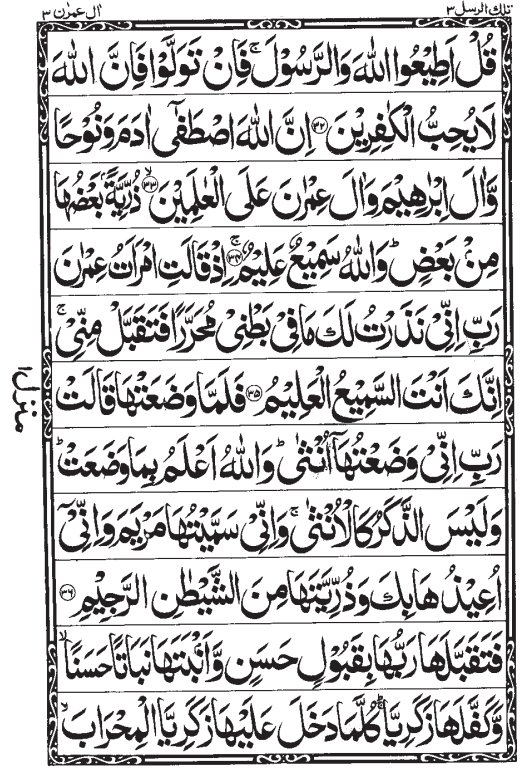 تلك الرسل ٣
اٰل عمرٰن ٣
قُلْ اَطِيْعُوا اللّٰهَ وَالرَّسُوْلَ ۚ فَاِنْ تَوَلَّوْا فَاِنَّ اللّٰهَ
لَا يُحِبُّ الْكٰفِرِيْنَ ﴿۳۲﴾ اِنَّ اللّٰهَ اصْطَفٰۤى اٰدَمَ وَنُوْحًا
وَّاٰلَ اِبْرٰهِيْمَ وَاٰلَ عِمْرٰنَ عَلَى الْعٰلَمِيْنَ ﴿۳۳﴾ ۙ ذُرِّيَّةًۢ بَعْضُهَا
مِنْۢ بَعْضٍ ؕ وَاللّٰهُ سَمِيْعٌ عَلِيْمٌ ﴿۳۴﴾ ۚ اِذْ قَالَتِ امْرَاَتُ عِمْرٰنَ
رَبِّ اِنِّيْ نَذَرْتُ لَكَ مَا فِيْ بَطْنِيْ مُحَرَّرًا فَتَقَبَّلْ مِنِّيْ ۚ
اِنَّكَ اَنْتَ السَّمِيْعُ الْعَلِيْمُ ﴿۳۵﴾ فَلَمَّا وَضَعَتْهَا قَالَتْ
رَبِّ اِنِّيْ وَضَعْتُهَاۤ اُنْثٰى ؕ وَاللّٰهُ اَعْلَمُ بِمَا وَضَعَتْ ؕ
وَلَيْسَ الذَّكَرُ كَالْاُنْثٰى ۚ وَاِنِّيْ سَمَّيْتُهَا مَرْيَمَ وَاِنِّيْۤ
اُعِيْذُهَا بِكَ وَذُرِّيَّتَهَا مِنَ الشَّيْطٰنِ الرَّجِيْمِ ﴿۳۶﴾
فَتَقَبَّلَهَا رَبُّهَا بِقَبُوْلٍ حَسَنٍ وَّاَنْۢبَتَهَا نَبَاتًا حَسَنًا ۙ
وَّكَفَّلَهَا زَكَرِيَّا ؕ كُلَّمَا دَخَلَ عَلَيْهَا زَكَرِيَّا الْمِحْرَابَ ۙ
منزل ۱